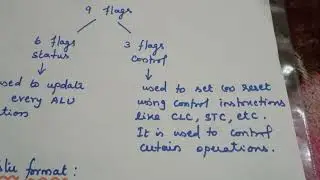 9 flags
6 flags
status
3 flags
control
used to update
every ALU
tions
used to set (or) reset
using control instructions
like CLC, STC, etc.
It is used to control
certain operations.
format: